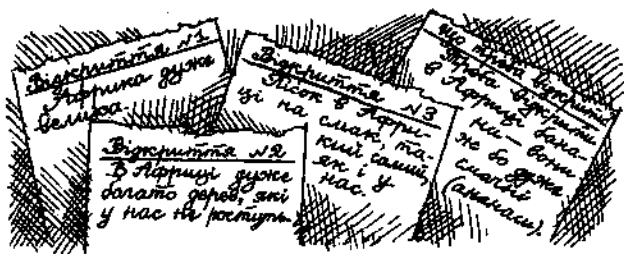 Відкриття №1
Африка дуже
велика
Відкриття №2
В Африці дуже
багато дерев, які
у нас не ростуть.
Відкриття №3
Пісок в Афри-
ці на смак та-
кий самий,
як і у
нас.
Що треба відкрити
Треба відкрити
в Африці бана-
ни — вони
ж бо дуже
смачні
(ананаси).